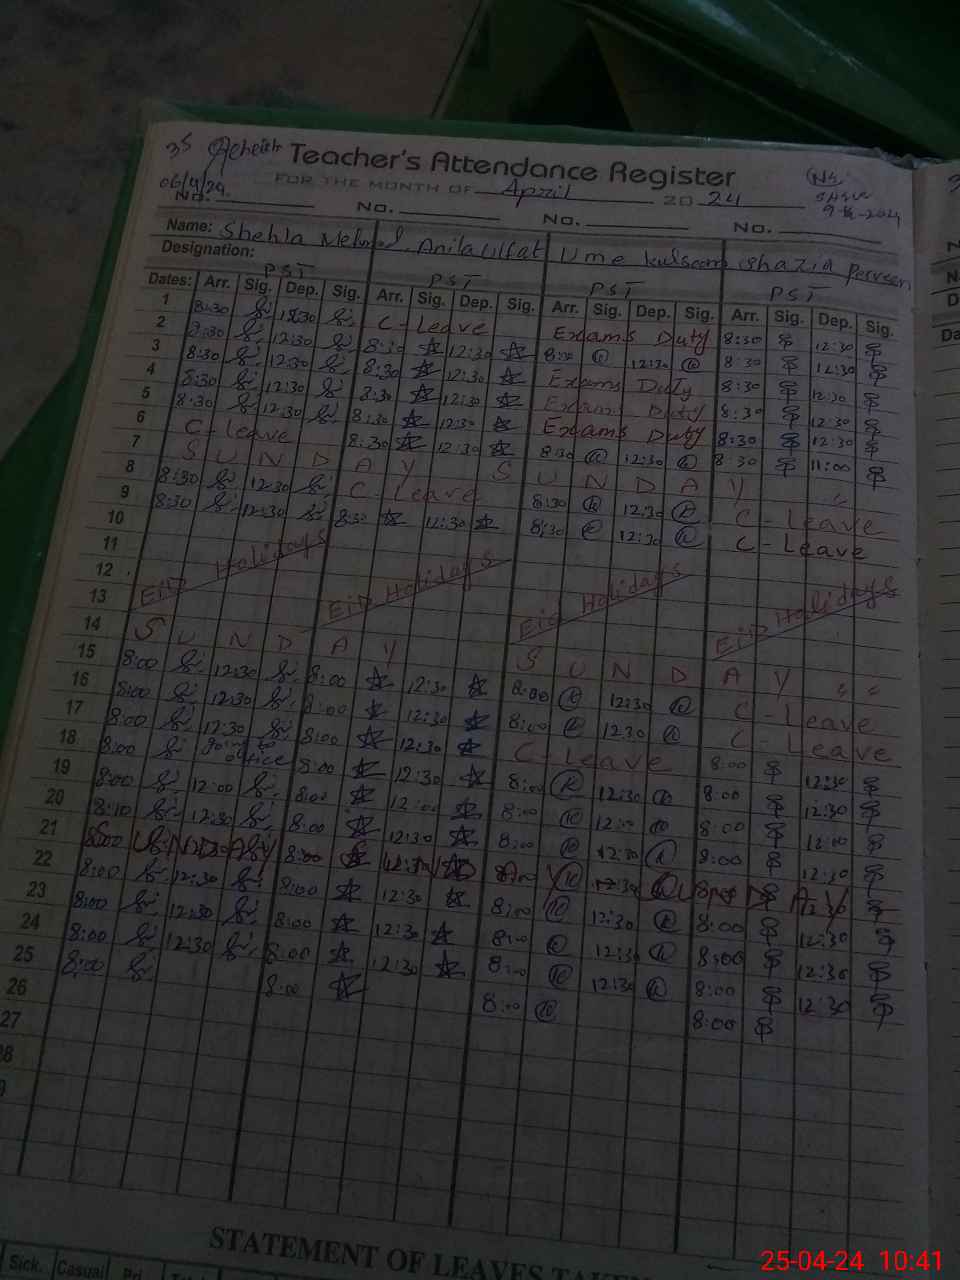 Teacher's Attendance Register
06/4/24. FOR THE MONTH OF April 20 24
No. No. No. No.
Name: Shehla Anila Ulfat Ume kulsoom Shazia Perveen
Designation: PST PST PST PST
Dates: Arr. Sig. Dep. Sig. Arr. Sig. Dep. Sig. Arr. Sig. Dep. Sig. Arr. Sig. Dep. Sig.
1 8:30 12:30 C-Leave Exams Duty 8:30 12:30
2 8:30 12:30 8:30 12:30 8:30 12:30 8:30 12:30
3 8:30 12:30 8:30 12:30 Exams Duty 8:30 12:30
4 8:30 12:30 8:30 12:30 Exams Duty 8:30 12:30
5 8:30 12:30 8:30 12:30 Exams Duty 8:30 12:30
6 C-leave 8:30 12:30 8:30 12:30 8:30 11:00
7 S U N D A Y S U N D A Y "
8 8:30 12:30 C-Leave 8:30 12:30 C-Leave
9 8:30 12:30 8:30 12:30 8:30 12:30 C-Leave
10
11
12 EiD Holidays EiD Holidays Eid Holidays EiD Holidays
13
14 S U N D A Y S U N D A Y " "
15 8:00 12:30 8:00 12:30 8:00 12:30 C-Leave
16 8:00 12:30 8:00 12:30 8:00 12:30 C-Leave
17 8:00 12:30 8:00 12:30 C-Leave 8:00 12:30
18 8:00 going to office 8:00 12:30 8:00 12:30 8:00 12:30
19 8:00 12:00 8:00 12:00 8:00 12:00 8:00 12:00
20 8:10 12:30 8:00 12:30 8:00 12:30 8:00 12:30
21 SUNDAY SUNDAY
22 8:00 12:30 8:00 12:30 8:00 12:30 8:00 12:30
23 8:00 12:30 8:00 12:30 8:00 12:30 8:00 12:30
24 8:00 12:30 8:00 12:30 8:00 12:30 8:00 12:30
25 8:00 8:00 8:00 8:00
26
27
STATEMENT OF LEAVES
Sick. Casual
25-04-24 10:41